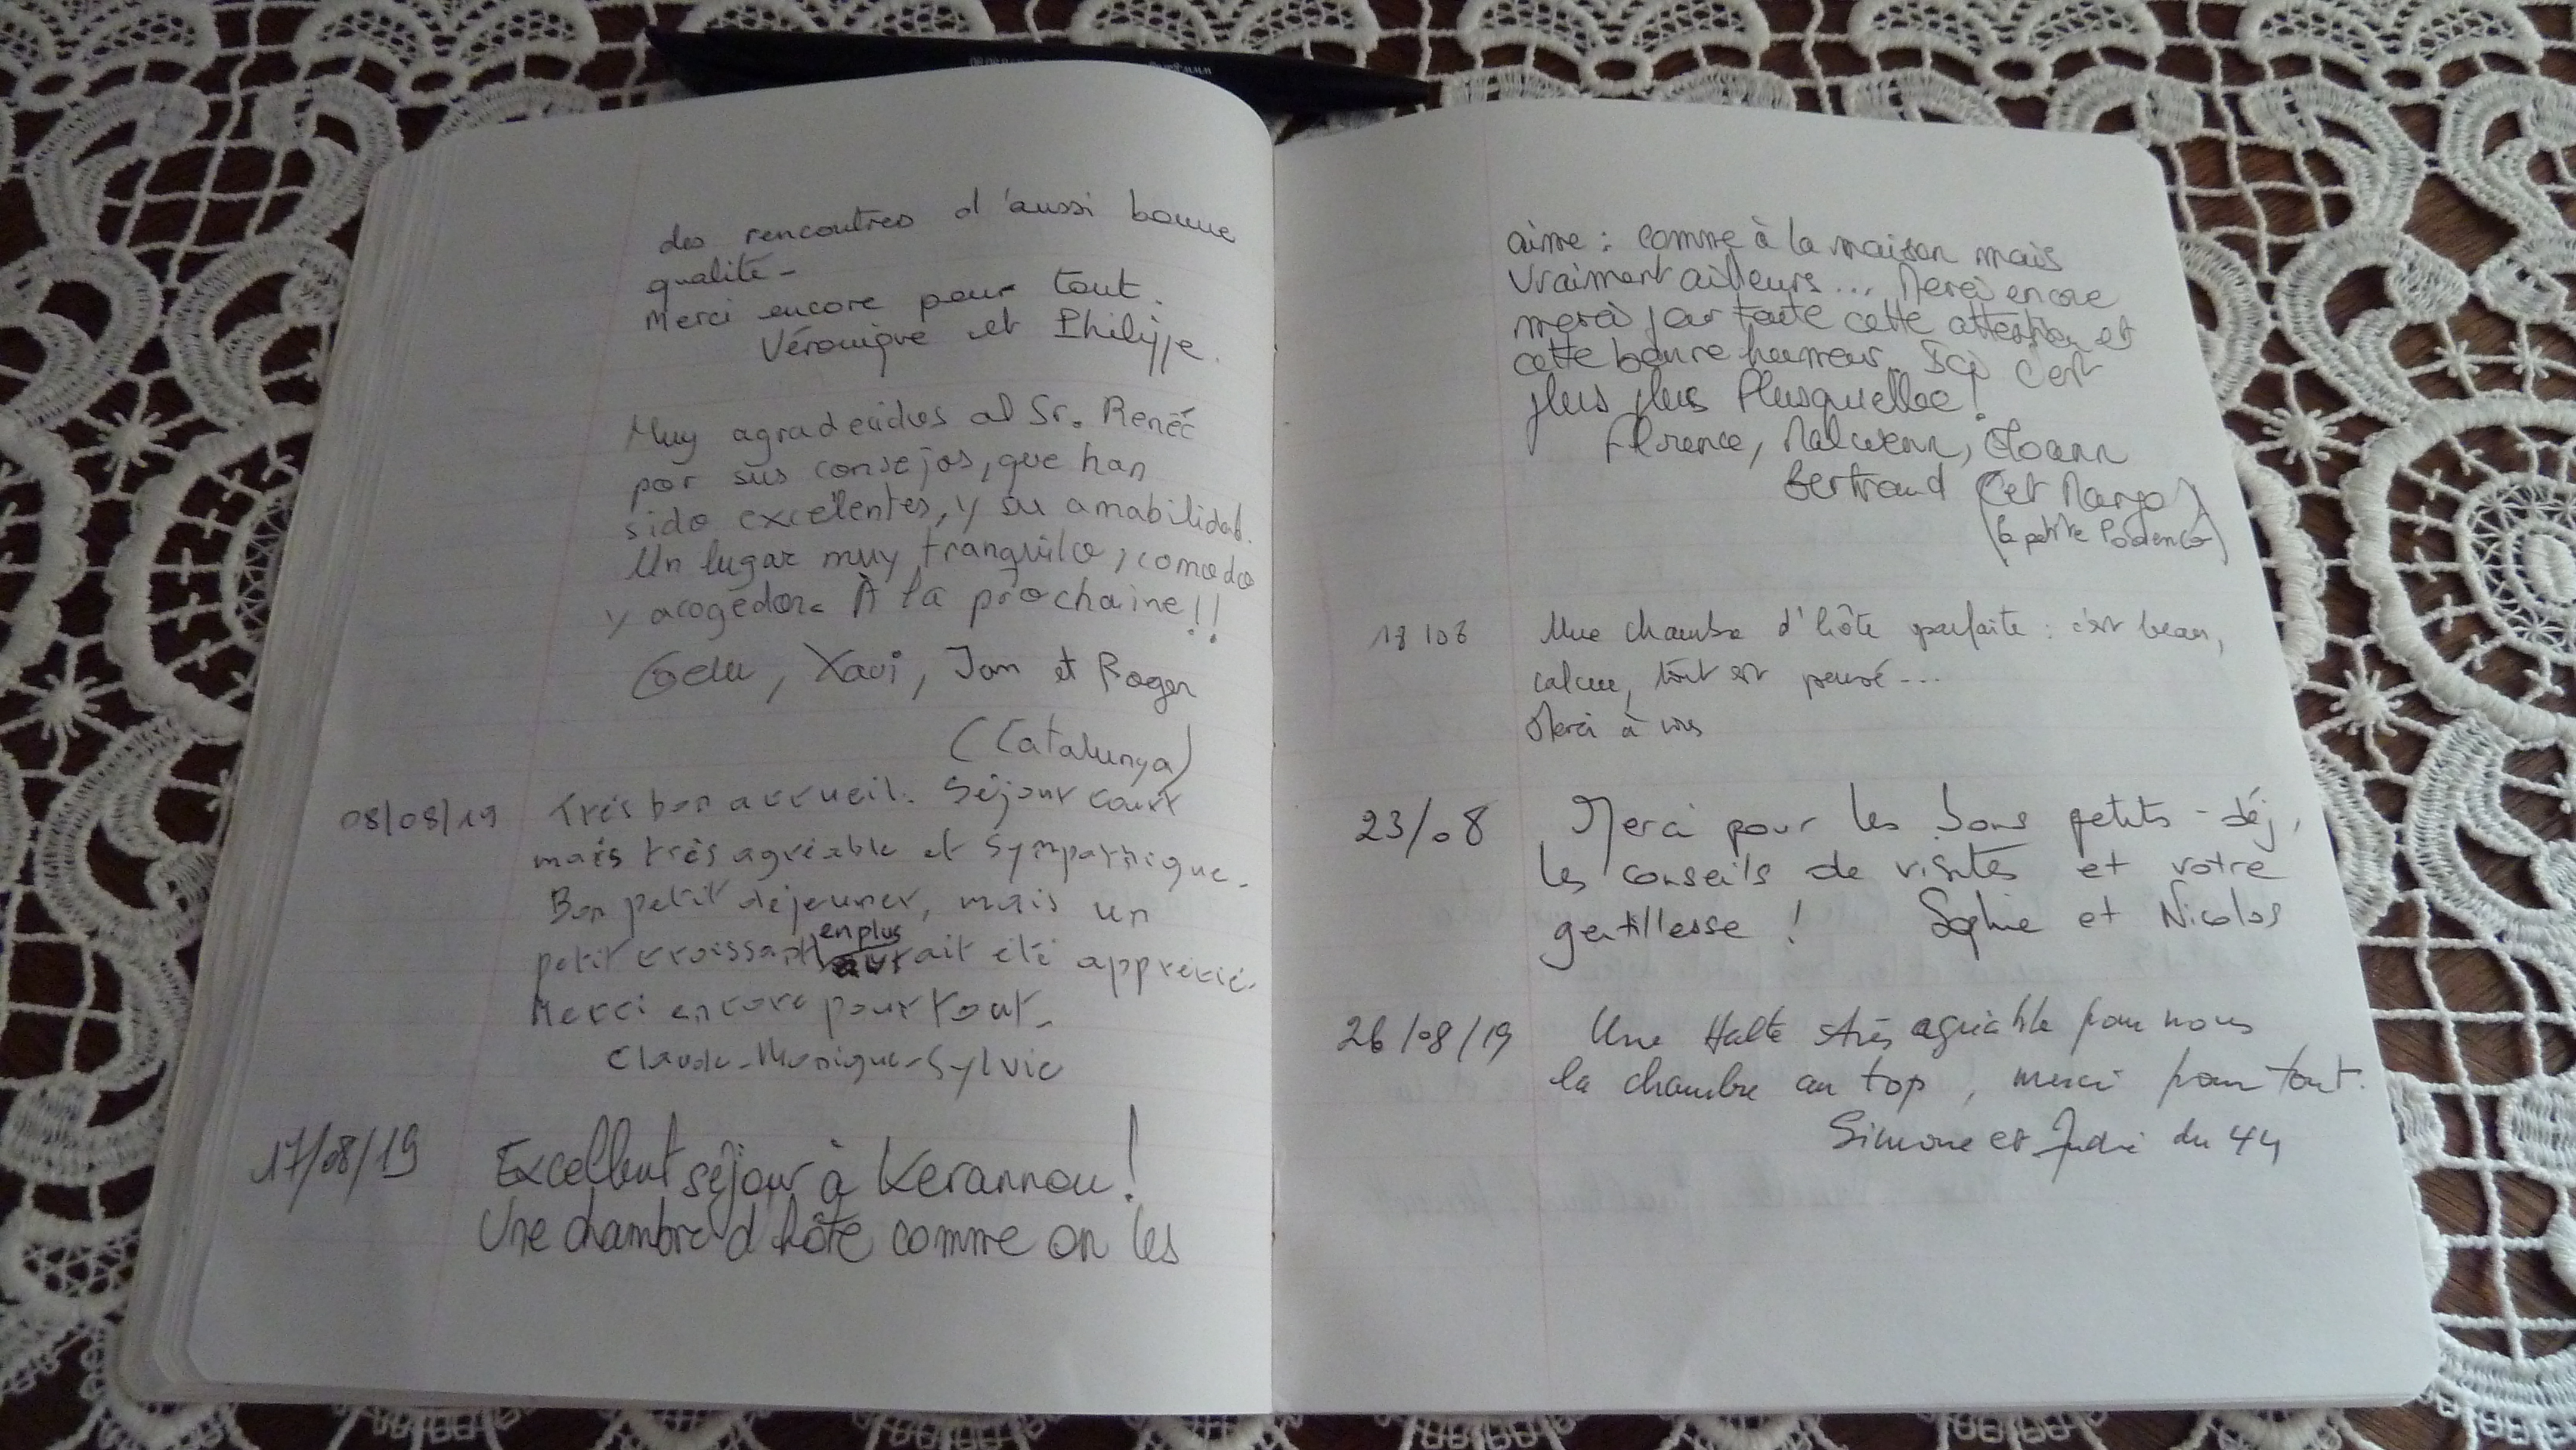 des rencontres d'aussi bonne
qualité -
Merci encore pour tout.
Véronique et Philippe.
Muy agradecidos al Sr. Reneé
por sus consejos, que han
sido excelentes, y su amabilidad.
Un lugar muy tranquilo, comodo
y acogedor. À la prochaine!!
Xavi, Jan et Roger
(Catalunya)
08/08/19 Très bon accueil. Séjour court
mais très agréable et sympathique.
Bon petit déjeuner, mais un
petit croissant en plus aurait été apprécié.
Merci encore pour tout.
Claude-Monique-Sylvie
17/08/19 Excellent séjour à Kerannou!
Une chambre d'hôte comme on les
aime : comme à la maison mais
vraiment ailleurs... Merci encore
merci pour toute cette attention et
cette bonne humeur. Ici c'est
plus plus Plusquellec!
Florence, Malwenn, Yoann
Bertrand (et Margo)
(la petite Podenco)
18/08 Une chambre d'hôte parfaite : c'est beau,
calme, tout est pensé...
Merci à vous
23/08 Merci pour les bons petits-déj,
les conseils de visites et votre
gentillesse ! Sophie et Nicolas
26/08/19 Une Halte très agréable pour nous
la chambre au top, merci pour tout.
Simone et André du 44